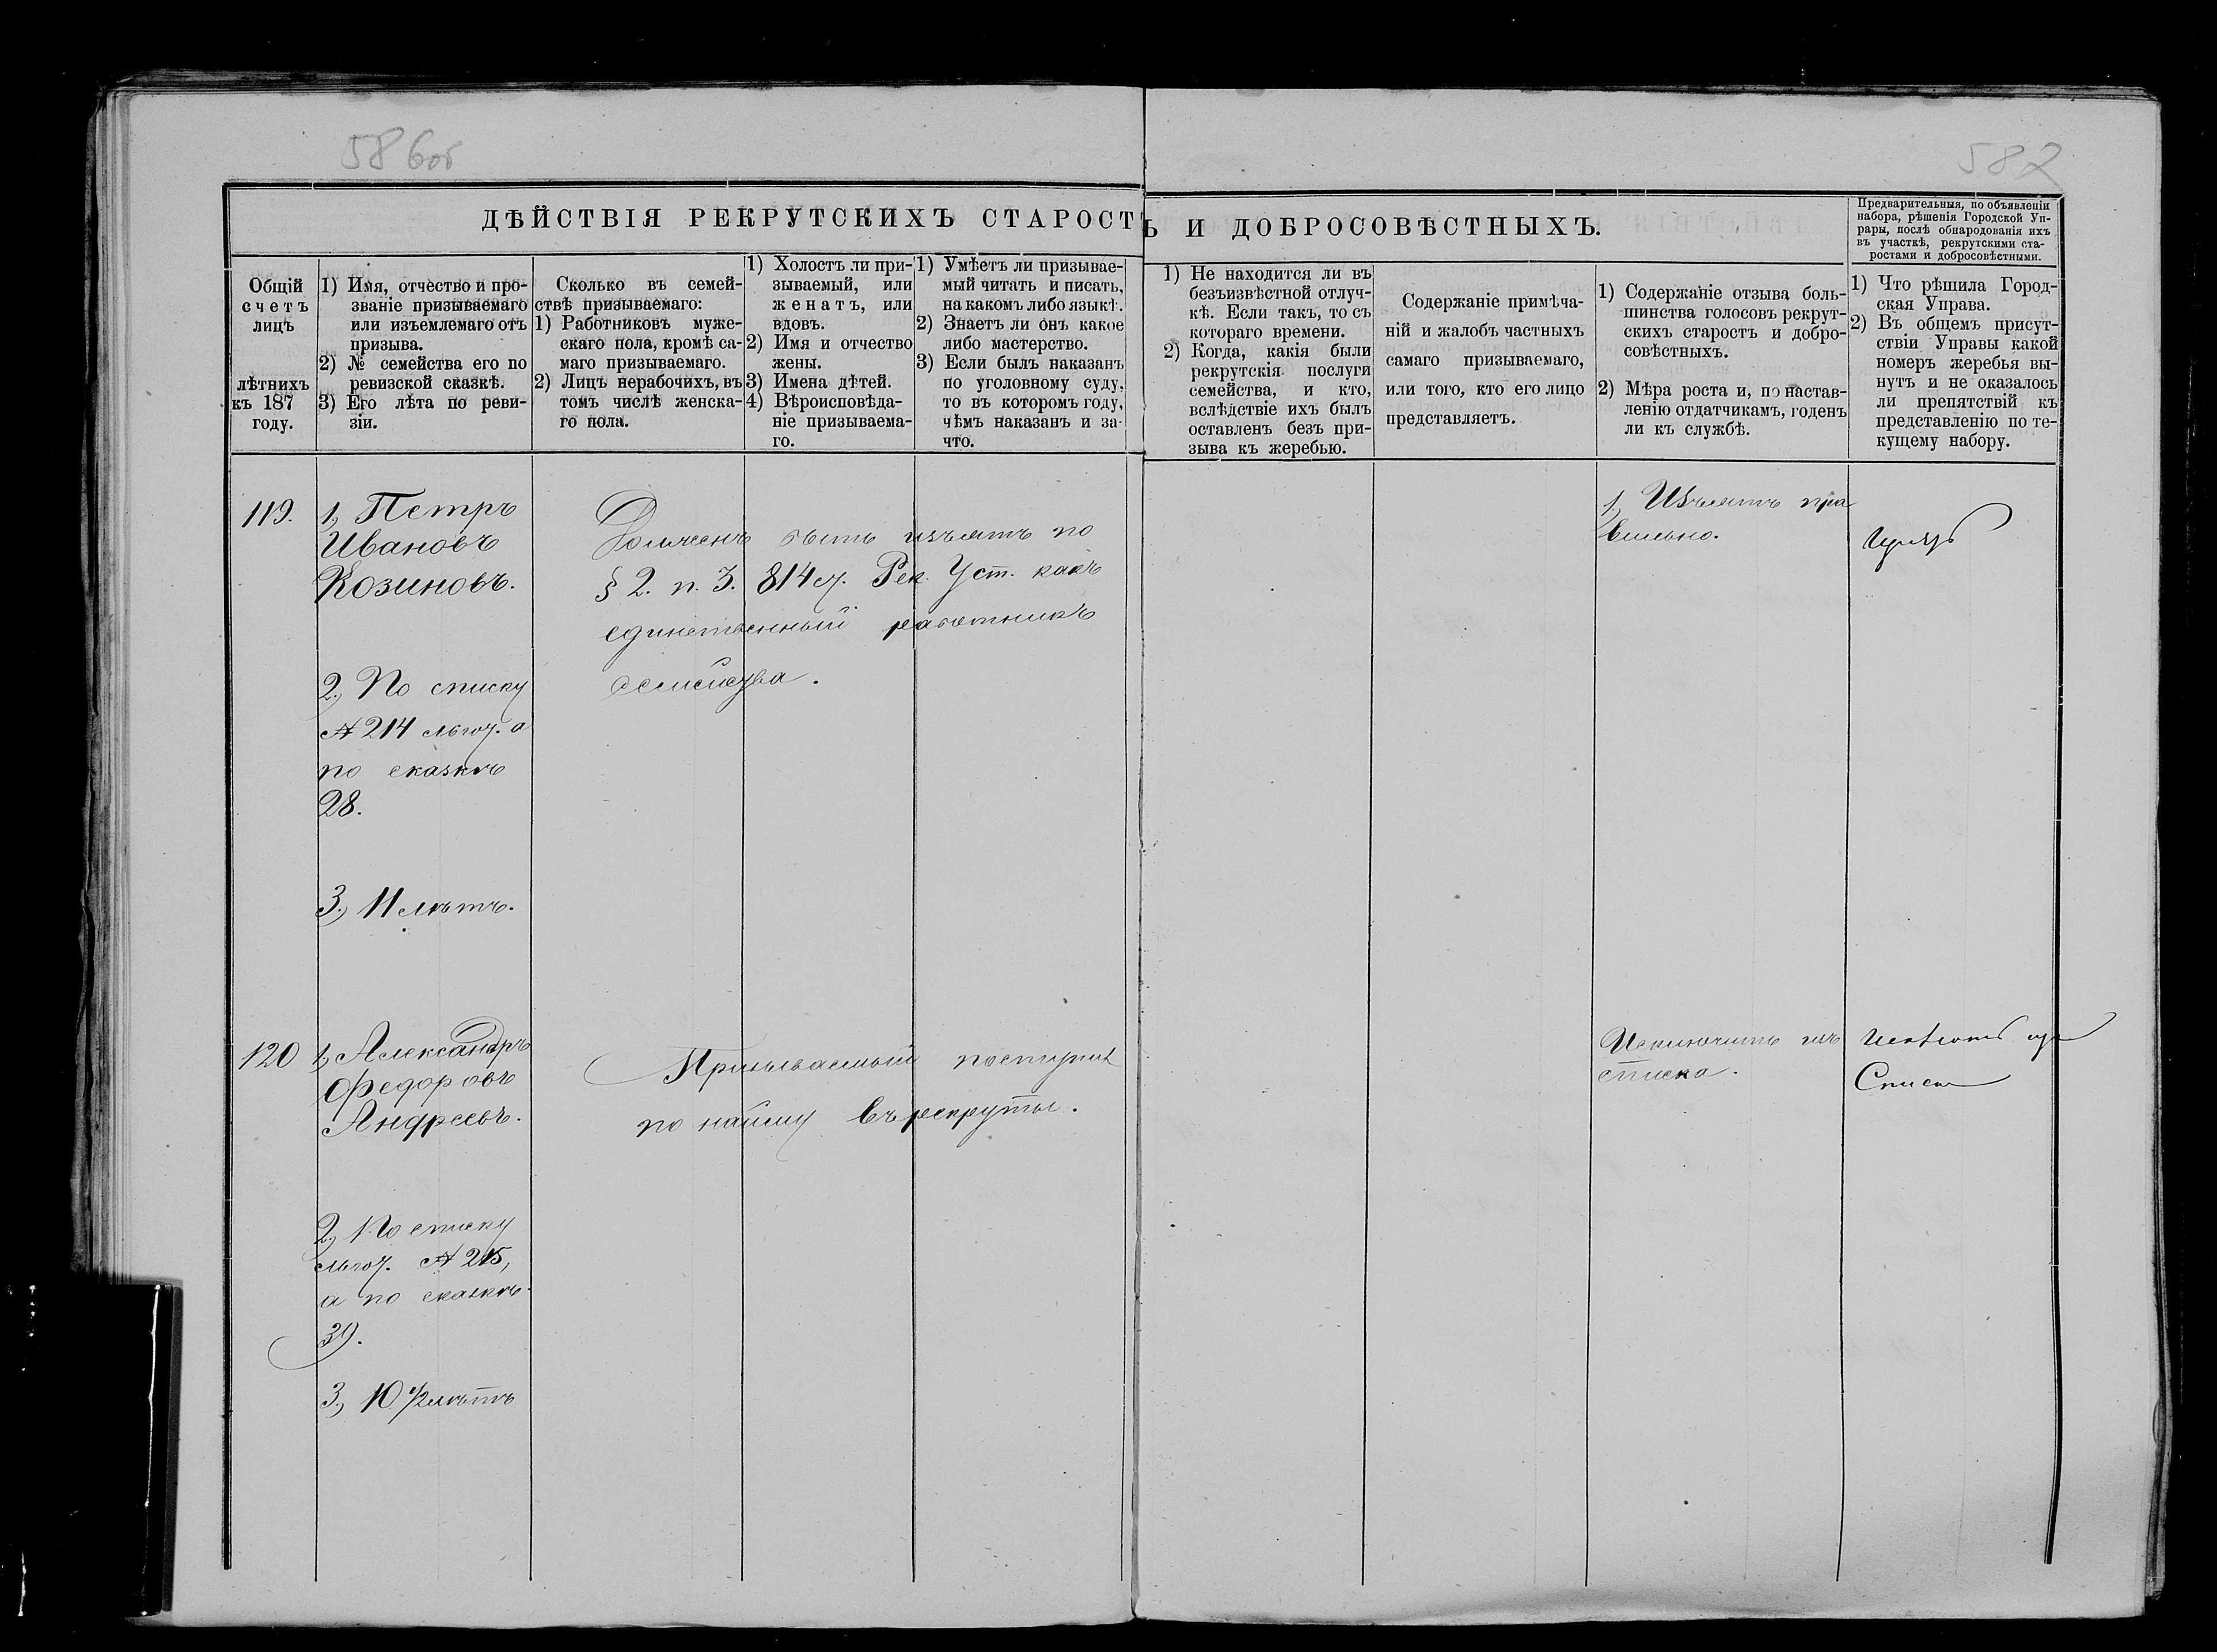 586об
587
ДѢЙСТВІЯ РЕКРУТСКИХЪ СТАРОСТЪ И ДОБРОСОВѢСТНЫХЪ.
Предварительныя, по объявленіи
набора, рѣшенія Городской Уп-
рары, послѣ обнародованія ихъ
въ участкѣ, рекрутскими ста-
ростами и добросовѣстными.
Общій
счетъ
лицъ
лѣтнихъ
къ 187
году.
1) Имя, отчество и про-
званіе призываемаго
или изъемлемаго отъ
призыва.
2) № семейства его по
ревизской сказкѣ.
3) Его лѣта по реви-
зіи.
Сколько въ семей-
ствѣ призываемаго:
1) Работниковъ муже-
скаго пола, кромѣ са-
маго призываемаго.
2) Лицъ нерабочихъ, въ
томъ числѣ женска-
го пола.
1) Холостъ ли при-
зываемый, или
женатъ, или
вдовъ.
2) Имя и отчество
жены.
3) Имена дѣтей.
4) Вѣроисповѣда-
ніе призываема-
го.
1) Умѣетъ ли призывае-
мый читать и писать,
на какомъ либо языкѣ.
2) Знаетъ ли онъ какое
либо мастерство.
3) Если былъ наказанъ
по уголовному суду,
то въ которомъ году,
чѣмъ наказанъ и за-
что.
1) Не находится ли въ
безъизвѣстной отлуч-
кѣ. Если такъ, то съ
котораго времени.
2) Когда, какія были
рекрутскія послуги
семейства, и кто,
вслѣдствіе ихъ былъ
оставленъ безъ при-
зыва къ жеребью.
Содержаніе примѣча-
ній и жалобъ частныхъ
самаго призываемаго,
или того, кто его лицо
представляетъ.
1) Содержаніе отзыва боль-
шинства голосовъ рекрут-
скихъ старостъ и добро-
совѣстныхъ.
2) Мѣра роста и, по настав-
ленію отдатчикамъ, годенъ
ли къ службѣ.
1) Что рѣшила Город-
ская Управа.
2) Въ общемъ присут-
ствіи Управы какой
номеръ жеребья вы-
нутъ и не оказалось
ли препятствій къ
представленію по те-
кущему набору.
119.
1, Петръ
Ивановъ
Козиновъ.
2, По списку
№ 214 льгот. а
по сказкѣ
28.
3, 11 лѣтъ.
Долженъ быть изъятъ по
§ 2. п. 3. 814 ст. Рек. Уст. какъ
единственный работникъ
семейства.
1, Изъятъ пра
вильно.
120
1, Александръ
Федоровъ
Андреевъ.
2, По списку
льгот. № 215,
а по сказкѣ
39.
3, 10 1/2 лѣтъ
Призываемый поступилъ
по найму въ рекруты.
Исключить изъ
списка.